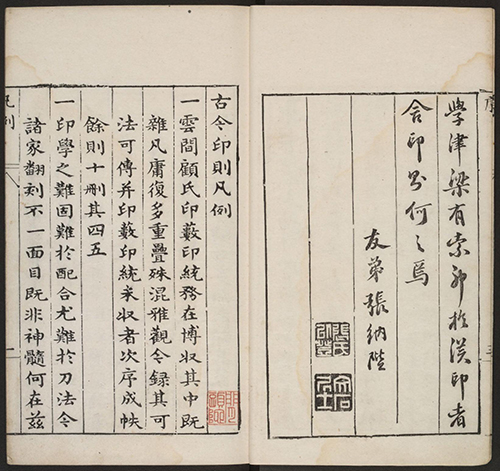 序
學津梁有索於漢印者
舍印則何之焉
友弟張納陛
古今印則凡例
一雲間顧氏印藪印統務在博収其中既
雜凡庸復多重疊殊混雅觀今録其可
法可傳并印藪印統未収者次序成帙
餘則十刪其四五
一印學之難固難於配合尤難於刀法今
諸家翻刻不一面目既非神髓何在茲
凡例
一